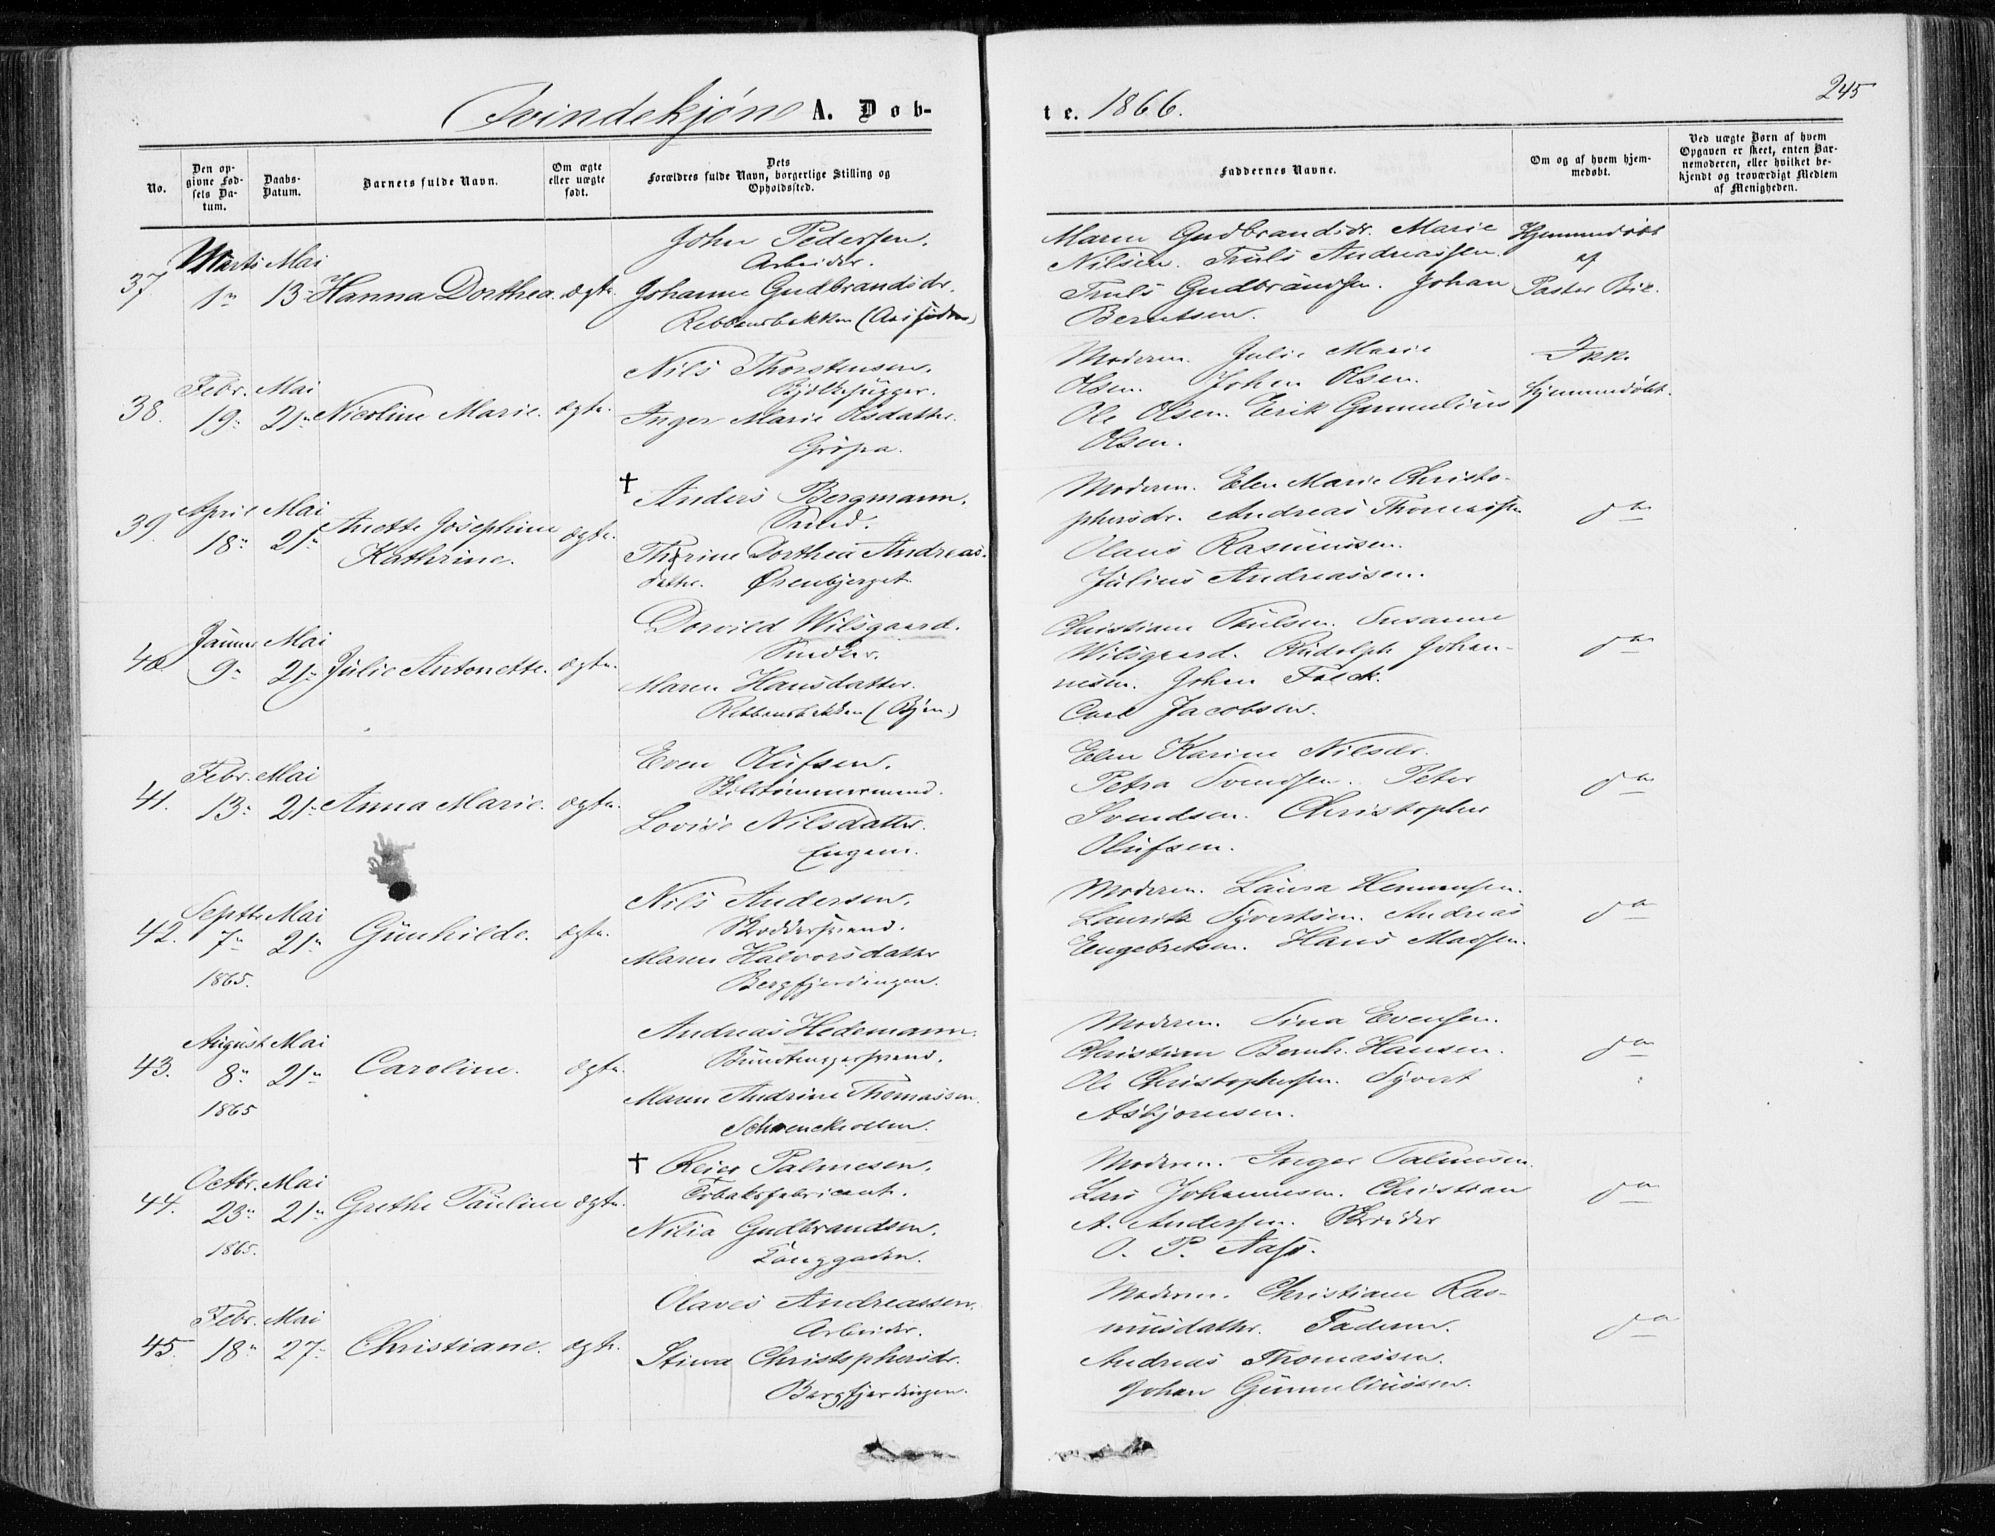 245
Qvindekjøn A. Døb-
te. 1866.
No.
Den opgivne Fødsels Datum.
Daabs-Datum.
Barnets fulde Navn.
Om ægte eller uægte født.
Dets Forældres fulde Navn, borgerlige Stilling og Opholdssted.
Faddernes Navne.
Om og af hvem hjemmedøbt.
Ved uægte Børn af hvem Opgaven er skeet, enten Barnemoderen, eller hvilket bekjendt og troværdigt Medlem af Menigheden.
37 Marts 1 Mai 13 Hanna Dorthea. ægte.
John Pedersen.
Arbeider.
Johanne Gudbrandsdr.
Rebbensbakken
Maren Gudbrandsdr. Marie
Nilsen. Truls Andreassen.
Truls Gudbrandsen. Johan
Berntsen.
Hjemmedøbt
af
Pastor
38. Febr. 19 Mai 21 Nicoline Marie. ægte.
Nils Thorstensen.
Bjelkehugger.
Inger Marie Olsdatter.
Grøpa.
Moderen. Julie Marie
Olsen. Johan Olsen.
Ole Olsen. Erik Gunnelius
Olsen.
Ikke
hjemmedøbt.
39. April 18 Mai 21 Anette Josephine
Kathrine. ægte.
† Anders Bergmann.
Smed.
Thrine Dorthea Andreas-
datter. Ørenbjerget.
Moderen. Elen Marie Christo-
phersdr. Andreas Thomassen
Olaus Rasmussen.
Julius Andreassen.
do
40 Januar 9 Mai 21 Julie Antonette. ægte.
Dorvild Wilsgaard.
Snedker.
Maren Hansdatter.
Rebbensbakken (Byen.)
Christiane Paulsen. Susanne
Wilsgaard. Rudolph Johan-
nesen. Johan Falck.
Carl Jacobsen.
do
41. Febr. 13 Mai 21 Anna Marie. ægte.
Even Olufsen.
Skibstømmermand.
Lovise Nilsdatter.
Engene.
Elen Karine Nilsdr.
Petra Svendsen. Peter
Svendsen. Christopher
Olufsen.
do
42. Septbr. 7 1865. Mai 21 Gunhilde. ægte.
Nils Andersen.
Maren Halvorsdatter
Bergfjerdingen.
Moderen. Laura Hemmensen.
Lauritz Syvertsen. Andreas
Engebretsen. Hans Madsen.
do
43. August 8 1865 Mai 21 Caroline. ægte.
Andreas Hedemann.
Bundtmagersvend.
Maren Andrine Thomassen.
Schwenckvollen.
Moderen. Sina Evensen.
Christian Bernh. Hansen.
Ole Christophersen. Syvert
Asbjørnsen.
do
44. Octbr. 23 1865. Mai 21 Grethe Pauline ægte.
† Reier Palmesen.
Tobaksfabricant.
Nilia Gudbrandsen.
Langgaden.
Moderen. Inger Palmesen.
Lars Johannesen. Christian
A. Andersen. Skræder
O. P. Aass.
do
45. Febr. 18 Mai 27 Christiane. ægte.
Olaves Andreassen.
Arbeider.
Stina Christophersdr.
Bergfjerdingen.
Moderen. Christiane Ras-
musdatter. Faderen.
Andreas Thomassen.
Johan Gunneliussen.
do